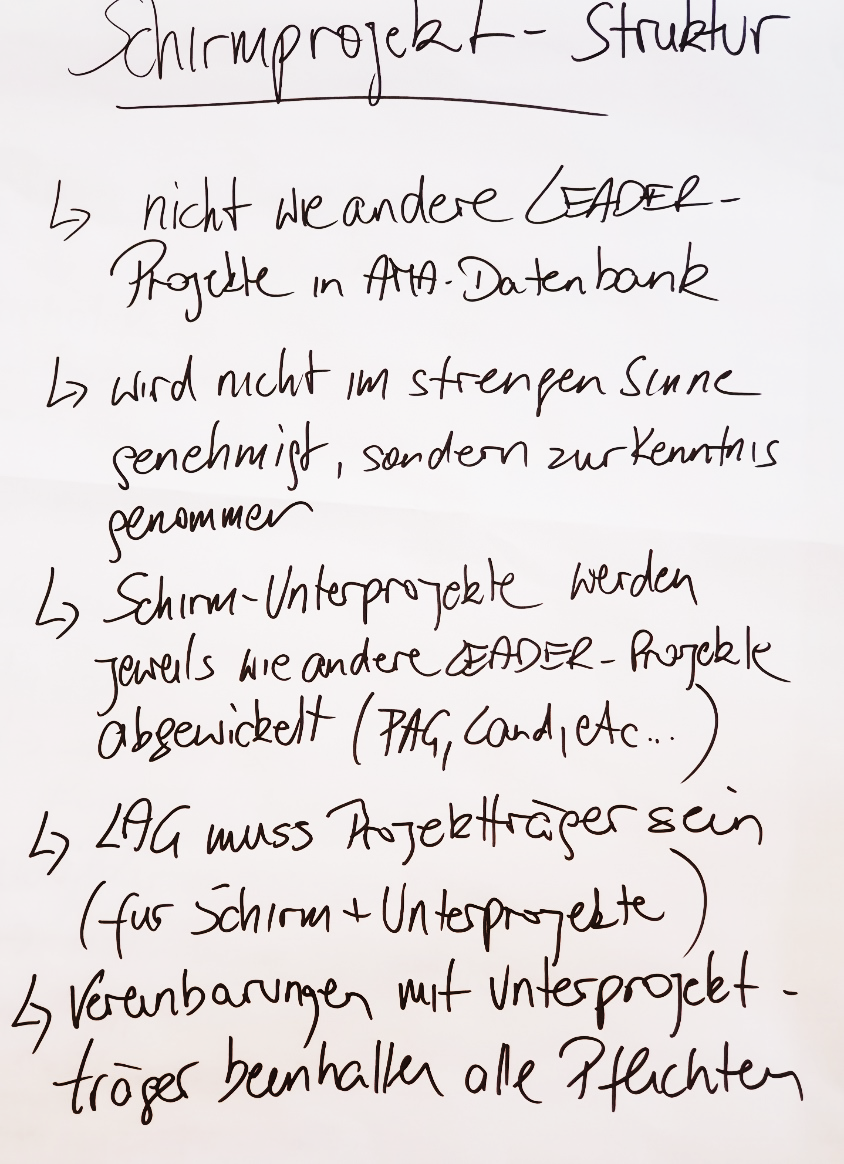 Schirmprojekt - Struktur
↳ nicht wie andere LEADER-
Projekte in AMA-Datenbank
↳ wird nicht im strengen Sinne
genehmigt, sondern zur Kenntnis
genommen
↳ Schirm-Unterprojekte werden
jeweils wie andere LEADER-Projekte
abgewickelt (PAG, Land, etc...)
↳ LAG muss Projektträger sein
(für Schirm + Unterprojekte)
↳ Vereinbarungen mit Unterprojekt-
träger beinhalten alle Pflichten